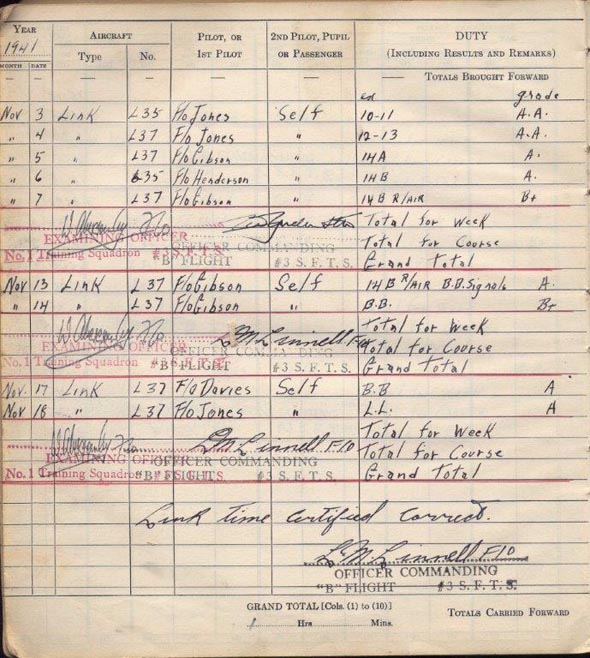 YEAR AIRCRAFT PILOT, OR 2ND PILOT, PUPIL DUTY
1941 Type No. 1ST PILOT OR PASSENGER (INCLUDING RESULTS AND REMARKS)
MONTH DATE
— — — — — — — TOTALS BROUGHT FORWARD
ex grade
Nov 3 Link L35 F/o Jones Self 10-11 A.A.
" 4 " L37 F/o Jones " 12-13 A.A.
" 5 " L37 F/o Gibson " 14A A.
" 6 " L35 F/o Henderson " 14B A.
" 7 " L37 F/o Gibson " 14B R/AIR B+
Total for Week
EXAMINING OFFICER OFFICER COMMANDING Total for Course
No. 1 Training Squadron #3 S.F.T.S. "B" FLIGHT #3 S.F.T.S. Grand Total
Nov 13 Link L37 F/o Gibson Self 14B R/AIR B.B. Signals A.
" 14 " L37 F/o Gibson " B.B. B+
L M Linnell F/O Total for Week
EXAMINING OFFICER OFFICER COMMANDING Total for Course
No. 1 Training Squadron #3 S.F.T.S. "B" FLIGHT #3 S.F.T.S. Grand Total
Nov. 17 Link L37 F/o Davies Self B.B A
Nov 18 " L37 F/o Jones " L.L. A
L M Linnell F/O Total for Week
EXAMINING OFFICER OFFICER COMMANDING Total for Course
No. 1 Training Squadron #3 S.F.T.S. "B" FLIGHT #3 S.F.T.S. Grand Total
Link time certified correct.
L M Linnell F/O
OFFICER COMMANDING
"B" FLIGHT #3 S.F.T.S.
GRAND TOTAL [Cols. (1) to (10)] TOTALS CARRIED FORWARD
Hrs Mins.